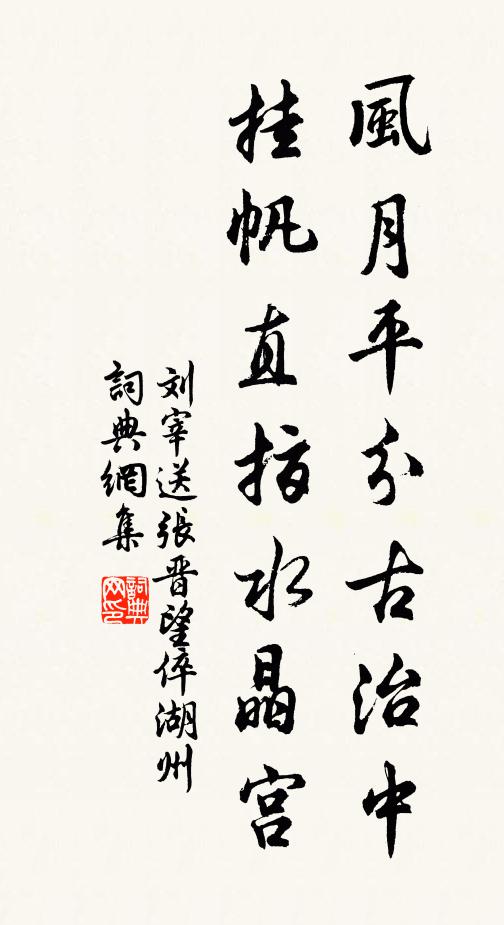 風月平分古治中
挂帆直指水晶宮
刘宰送張晋望倅湖州
詞典網集
詞典網印